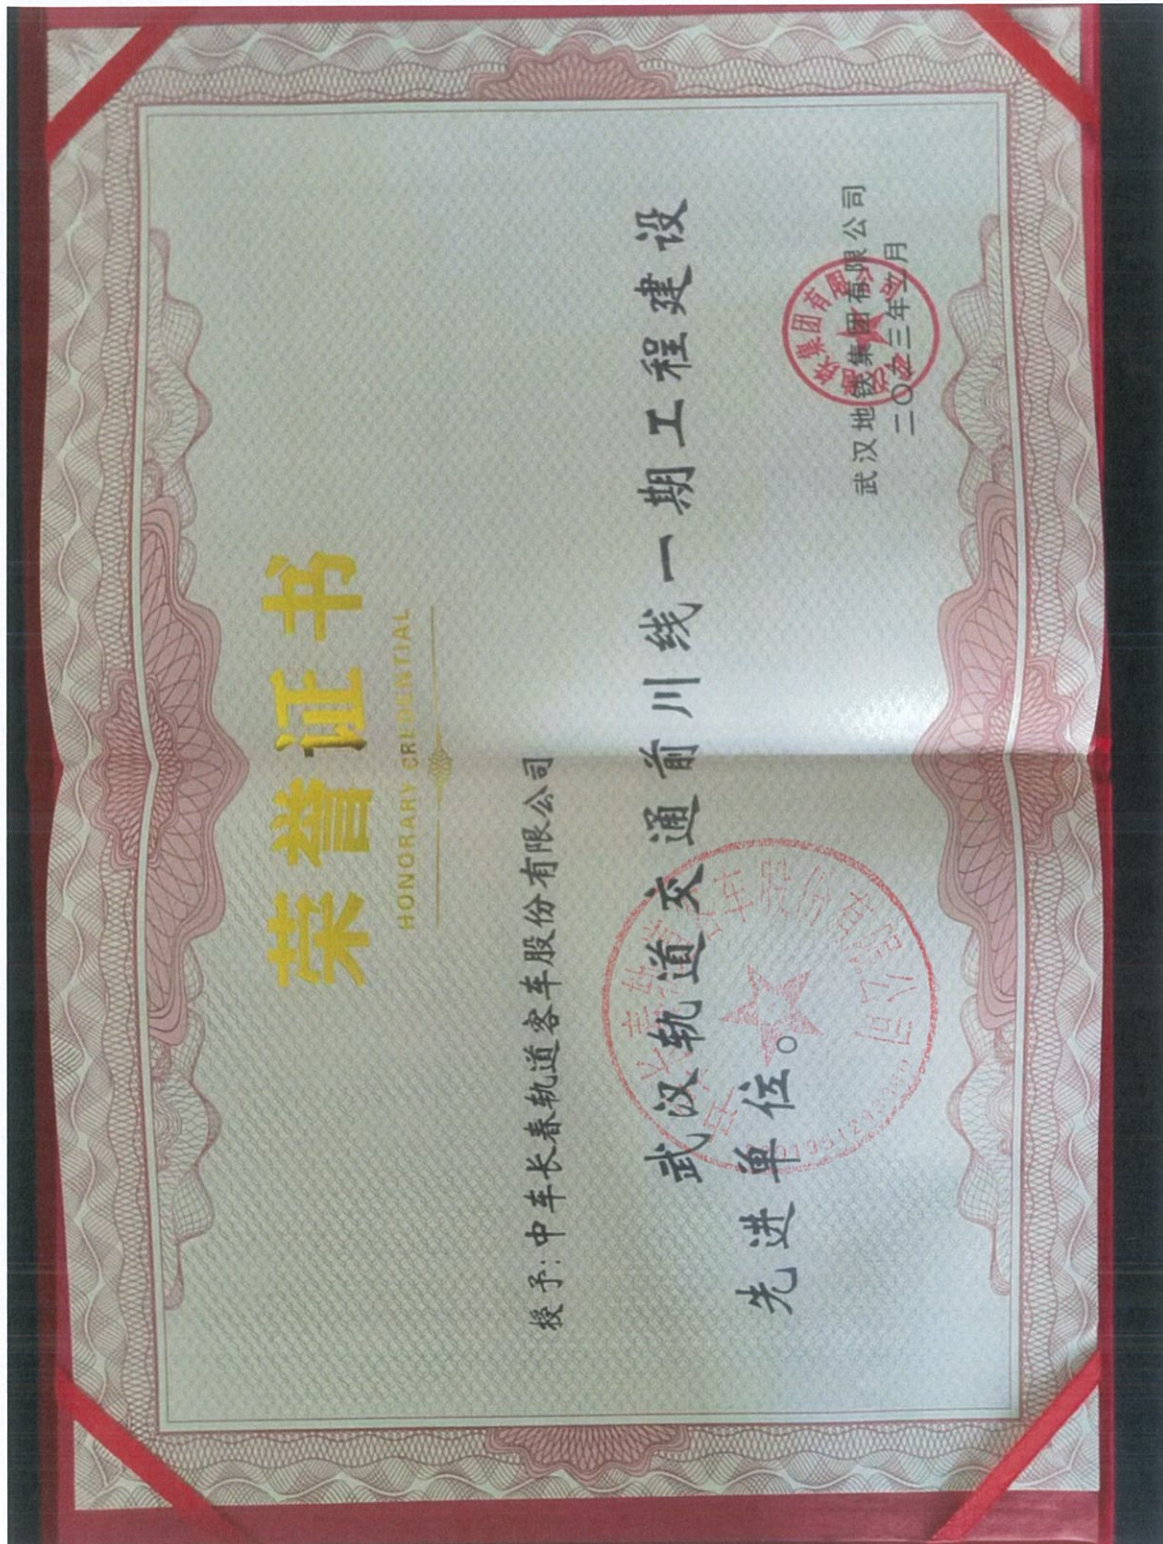 荣誉证书
HONORARY CREDENTIAL
授予：中车长春轨道客车股份有限公司
武汉轨道交通前川线一期工程建设
先进单位。
武汉地铁集团有限公司
二〇二三年 月